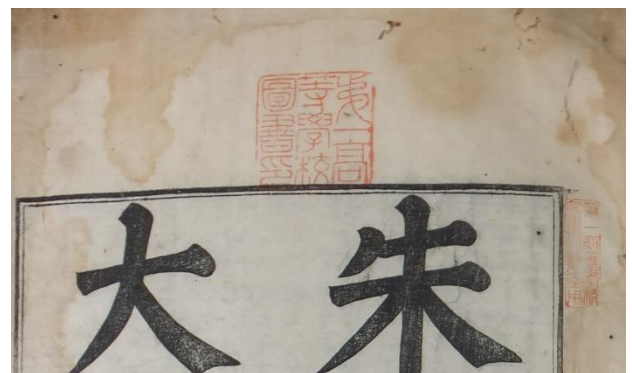 第一高
等學校
圖書印
朱
大